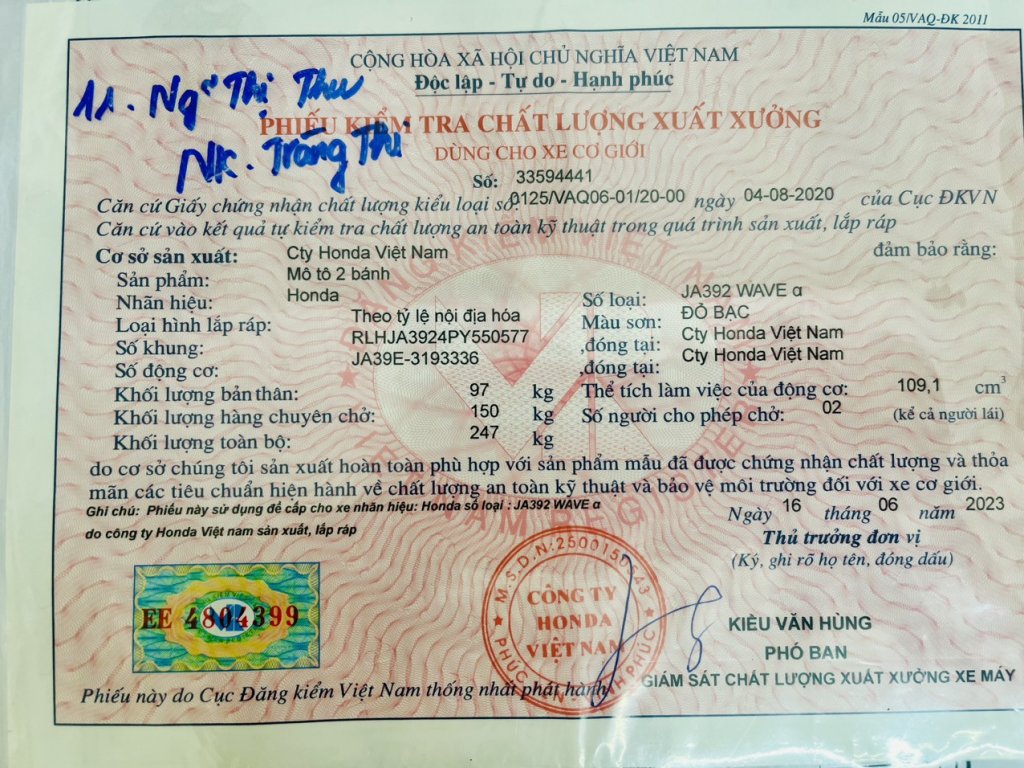 Mẫu 05/VAQ-ĐK 2011
CỘNG HÒA XÃ HỘI CHỦ NGHĨA VIỆT NAM
Độc lập - Tự do - Hạnh phúc
11. Ngᵒ Thị Thu
NK. Trăng Thi
PHIẾU KIỂM TRA CHẤT LƯỢNG XUẤT XƯỞNG
DÙNG CHO XE CƠ GIỚI
Số: 33594441
Căn cứ Giấy chứng nhận chất lượng kiểu loại số: 0125/VAQ06-01/20-00 ngày 04-08-2020 của Cục ĐKVN
Căn cứ vào kết quả tự kiểm tra chất lượng an toàn kỹ thuật trong quá trình sản xuất, lắp ráp
Cơ sở sản xuất: Cty Honda Việt Nam đảm bảo rằng:
Sản phẩm: Mô tô 2 bánh
Nhãn hiệu: Honda Số loại: JA392 WAVE α
Loại hình lắp ráp: Theo tỷ lệ nội địa hóa Màu sơn: ĐỎ BẠC
Số khung: RLHJA3924PY550577 ,đóng tại: Cty Honda Việt Nam
Số động cơ: JA39E-3193336 ,đóng tại: Cty Honda Việt Nam
Khối lượng bản thân: 97 kg Thể tích làm việc của động cơ: 109,1 cm³
Khối lượng hàng chuyên chở: 150 kg Số người cho phép chở: 02 (kể cả người lái)
Khối lượng toàn bộ: 247 kg
do cơ sở chúng tôi sản xuất hoàn toàn phù hợp với sản phẩm mẫu đã được chứng nhận chất lượng và thỏa
mãn các tiêu chuẩn hiện hành về chất lượng an toàn kỹ thuật và bảo vệ môi trường đối với xe cơ giới.
Ghi chú: Phiếu này sử dụng để cấp cho xe nhãn hiệu: Honda số loại : JA392 WAVE α
do công ty Honda Việt nam sản xuất, lắp ráp
Ngày 16 tháng 06 năm 2023
Thủ trưởng đơn vị
(Ký, ghi rõ họ tên, đóng dấu)
EE 4804399
M.S.D.N:2500150543
CÔNG TY
HONDA
VIỆT NAM
KIỀU VĂN HÙNG
PHÓ BAN
GIÁM SÁT CHẤT LƯỢNG XUẤT XƯỞNG XE MÁY
Phiếu này do Cục Đăng kiểm Việt Nam thống nhất phát hành